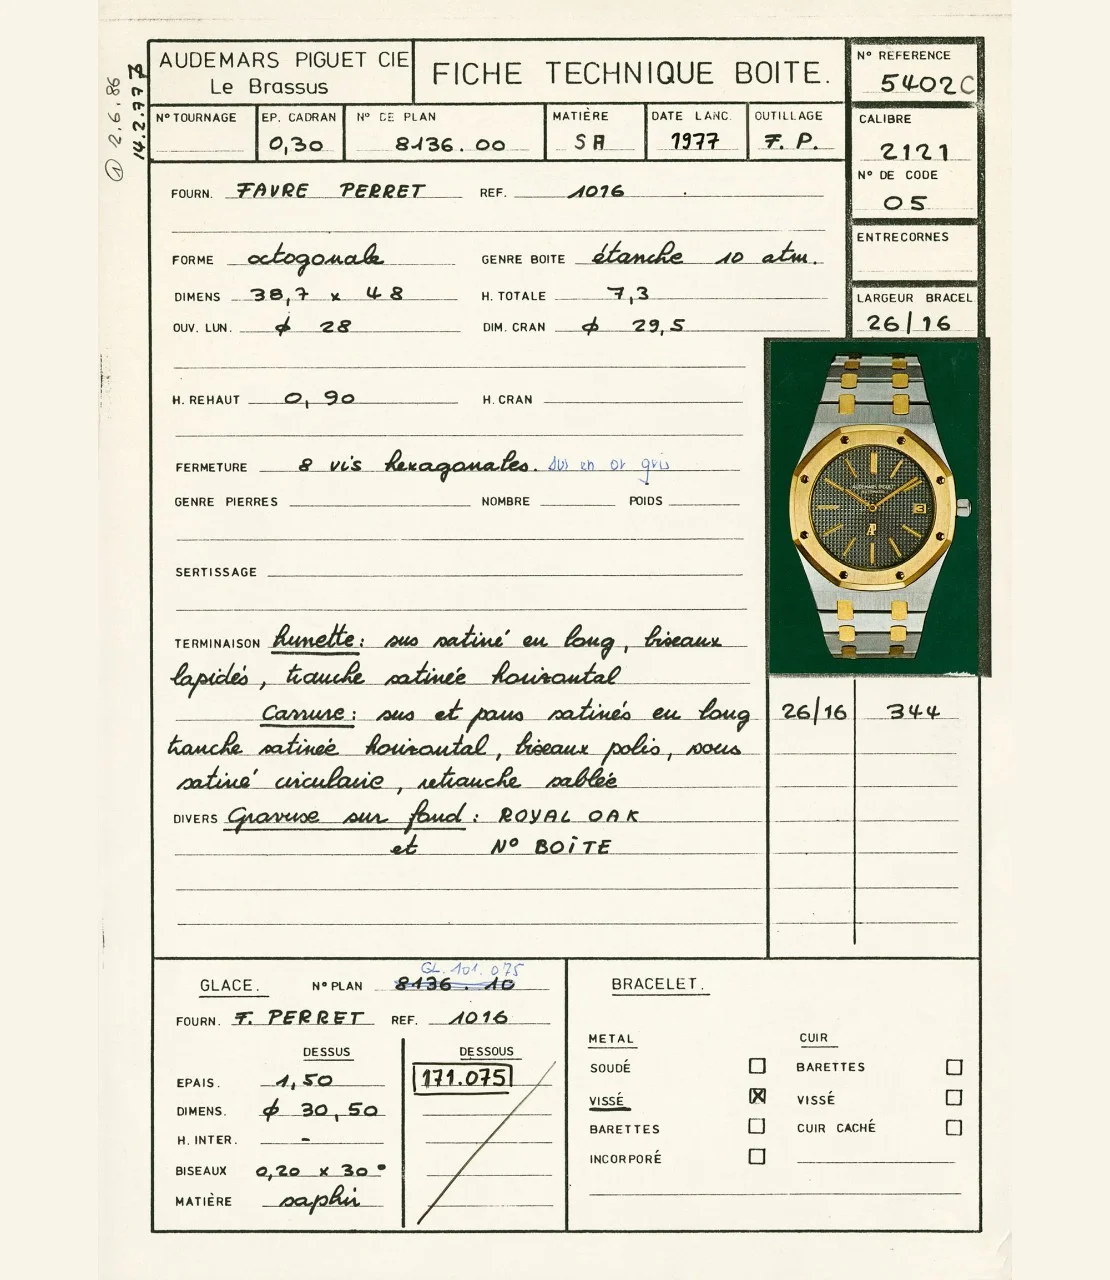 AUDEMARS PIGUET CIE
Le Brassus
FICHE TECHNIQUE BOITE.
N° REFERENCE
5402C
N° TOURNAGE
EP. CADRAN
0,30
N° DE PLAN
8136.00
MATIÈRE
SA
DATE LANC.
1977
OUTILLAGE
F. P.
CALIBRE
2121
N° DE CODE
05
ENTRECORNES
LARGEUR BRACEL
26/16
① 2.6.86
14.2.77
FOURN. FAVRE PERRET REF. 1016
FORME octogonale GENRE BOITE étanche 10 atm.
DIMENS 38,7 x 48 H. TOTALE 7,3
OUV. LUN. ϕ 28 DIM. CRAN ϕ 29,5
H. REHAUT 0,90 H. CRAN
FERMETURE 8 vis hexagonales. en or gris
GENRE PIERRES NOMBRE POIDS
SERTISSAGE
AUDEMARS PIGUET
AP
3
TERMINAISON lunette: sus satiné en long, biseaux
lapidés, tranche satinée horizontal
Carrure: sus et pans satinés en long
tranche satinée horizontal, biseaux polis, sous
satiné circulaire, retranche sablée
26/16 344
DIVERS Gravure sur fond: ROYAL OAK
et N° BOITE
GLACE. N° PLAN 8136.10
GL.101.075
FOURN. F. PERRET REF. 1016
DESSUS DESSOUS
EPAIS. 1,50 171.075
DIMENS. ϕ 30,50
H. INTER. -
BISEAUX 0,20 x 30°
MATIÈRE saphir
BRACELET.
METAL CUIR
SOUDÉ BARETTES
VISSÉ VISSÉ
BARETTES CUIR CACHÉ
INCORPORÉ